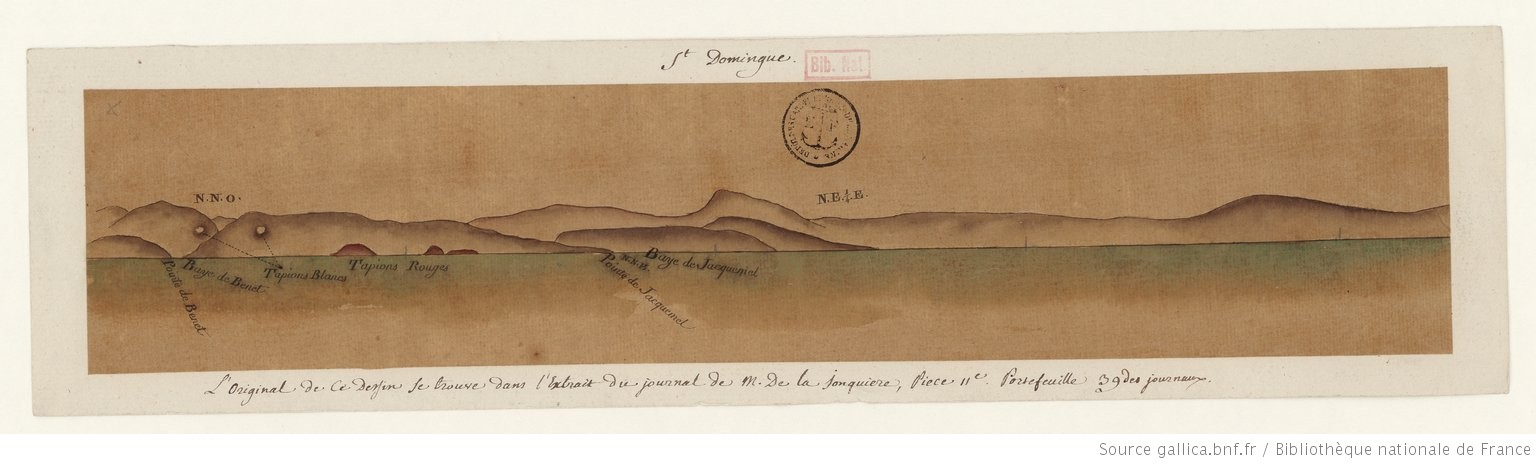 St Domingue.
Bib. Nat
N.N.O.
N.E.¼.E.
Tapions Blancs
Tapions Rouges
Baye de Benet
Pointe de Benet
N.N.E.
Baye de Jacquemel
Pointe de Jacquemel
L'Original de Ce Dessin se trouve dans l'Extrait du journal de M. De la Jonquiere, Piece 11e. Portefeuille 39 des journaux.
Source gallica.bnf.fr / Bibliothèque nationale de France